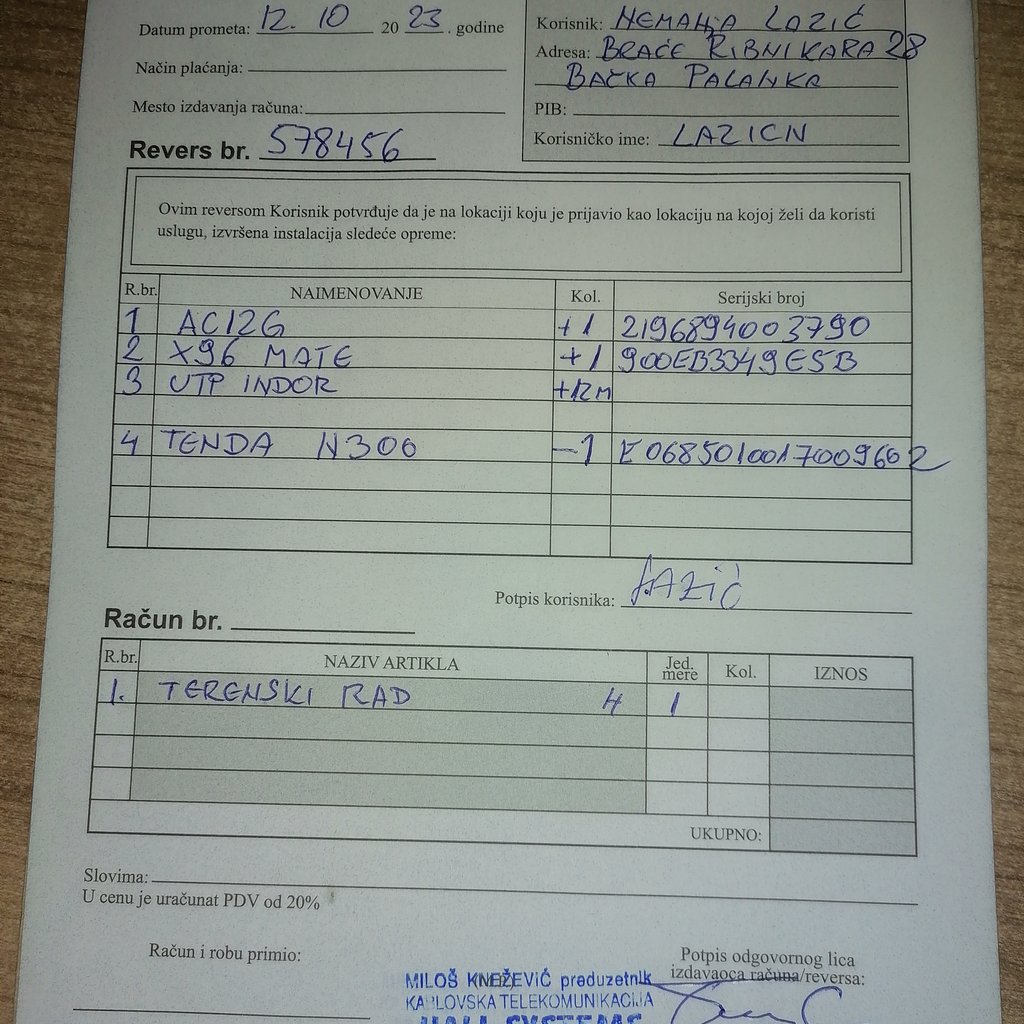 Datum prometa: 12. 10 20 23. godine
Način plaćanja:
Mesto izdavanja računa:
Revers br. 578456
Korisnik: NEMANJA LAZIĆ
Adresa: BRAĆE RIBNIKARA 28
BAČKA PALANKA
PIB:
Korisničko ime: LAZICN
Ovim reversom Korisnik potvrđuje da je na lokaciji koju je prijavio kao lokaciju na kojoj želi da koristi
uslugu, izvršena instalacija sledeće opreme:
R.br. NAIMENOVANJE Kol. Serijski broj
1 AC12G +1 2196894003790
2 X96 MATE +1 900EB3349E5B
3 UTP INDOR +12M
4 TENDA N300 -1 E0685010017009602
Potpis korisnika: Lazić
Račun br.
R.br. NAZIV ARTIKLA Jed. mere Kol. IZNOS
1. TERENSKI RAD 4 1
UKUPNO:
Slovima:
U cenu je uračunat PDV od 20%
Račun i robu primio:
Potpis odgovornog lica
izdavaoca računa/reversa:
MILOŠ KNEŽEVIĆ preduzetnik
KARLOVSKA TELEKOMUNIKACIJA